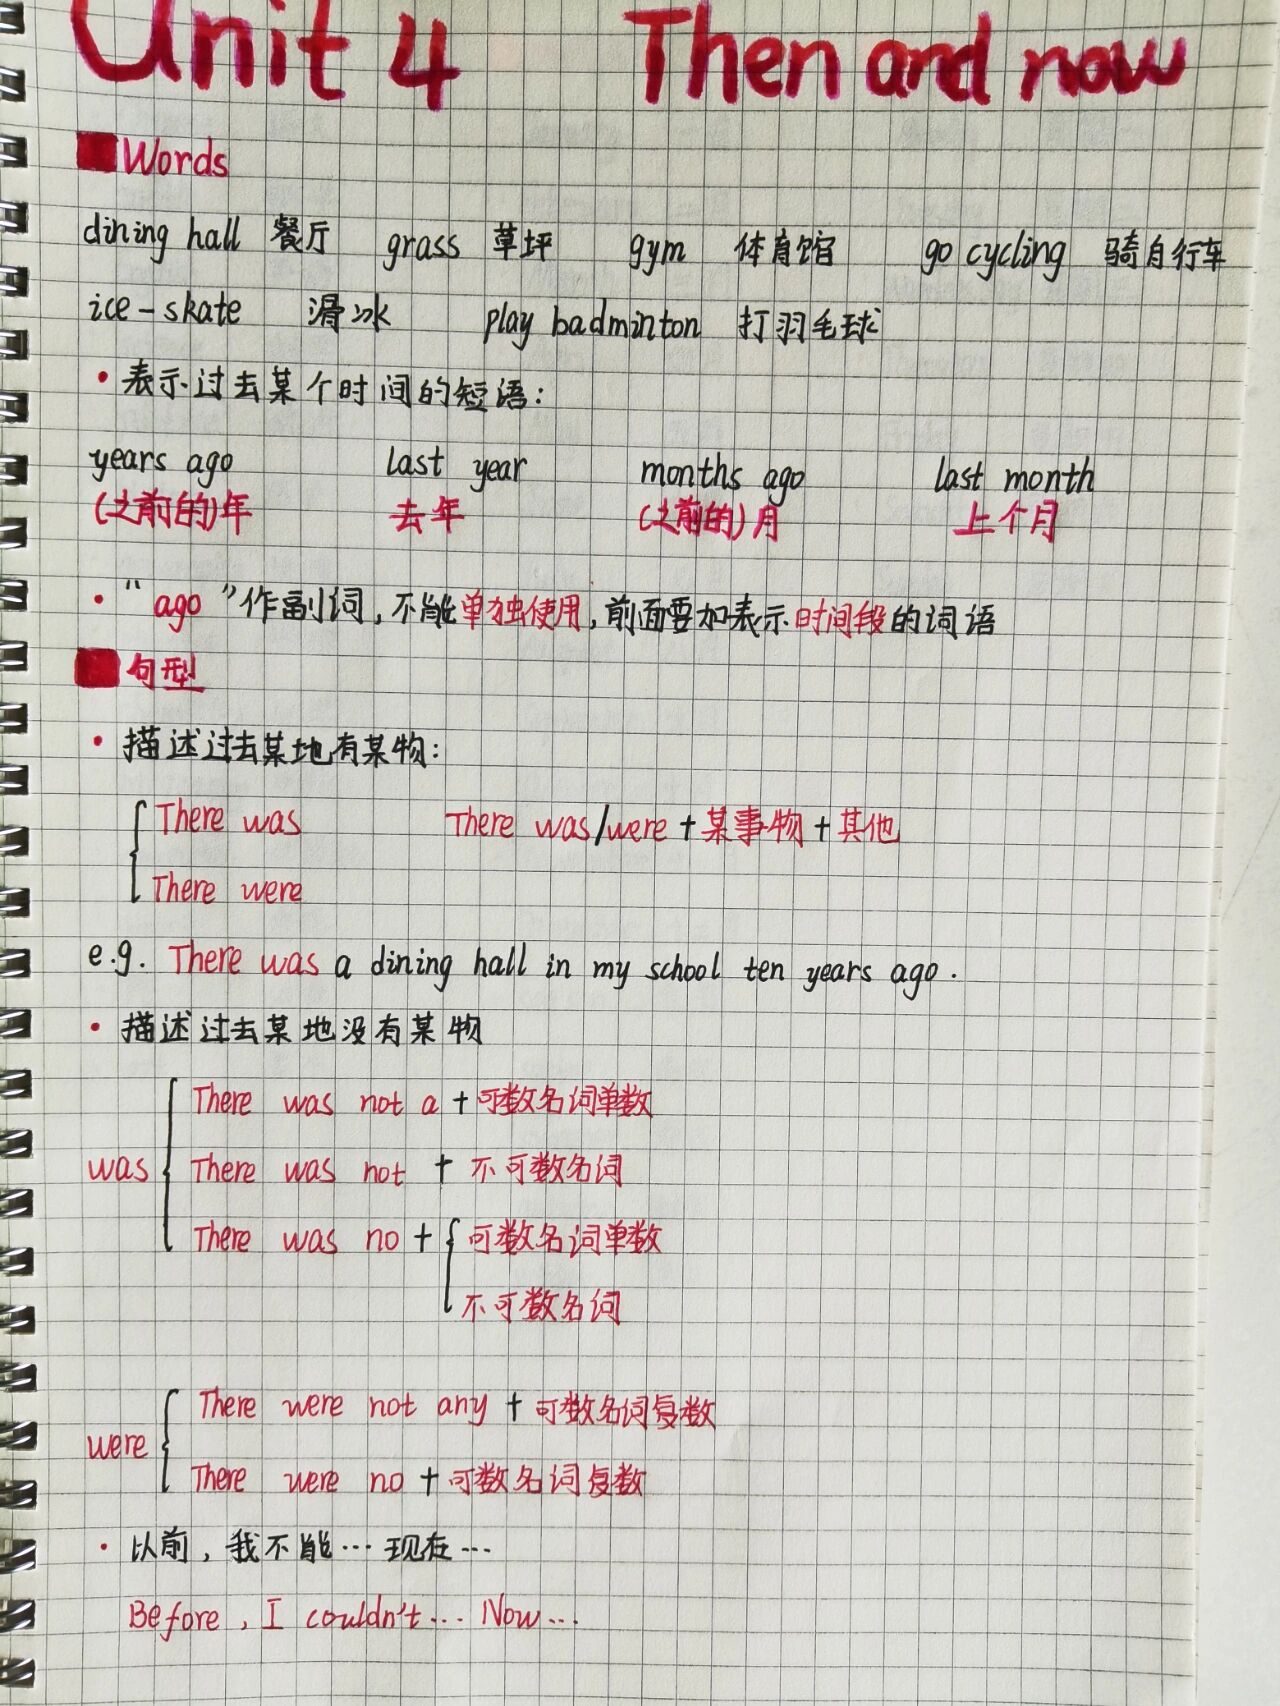 Unit 4 Then and now
Words
dining hall 餐厅 grass 草坪 gym 体育馆 go cycling 骑自行车
ice-skate 滑冰 play badminton 打羽毛球
• 表示过去某个时间的短语:
years ago last year months ago last month
(之前的)年 去年 (之前的)月 上个月
• “ago”作副词,不能单独使用,前面要加表示时间段的词语
句型
• 描述过去某地有某物:
There was There was/were + 某事物 + 其他
There were
e.g. There was a dining hall in my school ten years ago.
• 描述过去某地没有某物
There was not a + 可数名词单数
was There was not + 不可数名词
There was no + 可数名词单数
不可数名词
There were not any + 可数名词复数
were
There were no + 可数名词复数
• 以前,我不能… 现在…
Before, I couldn't… Now…